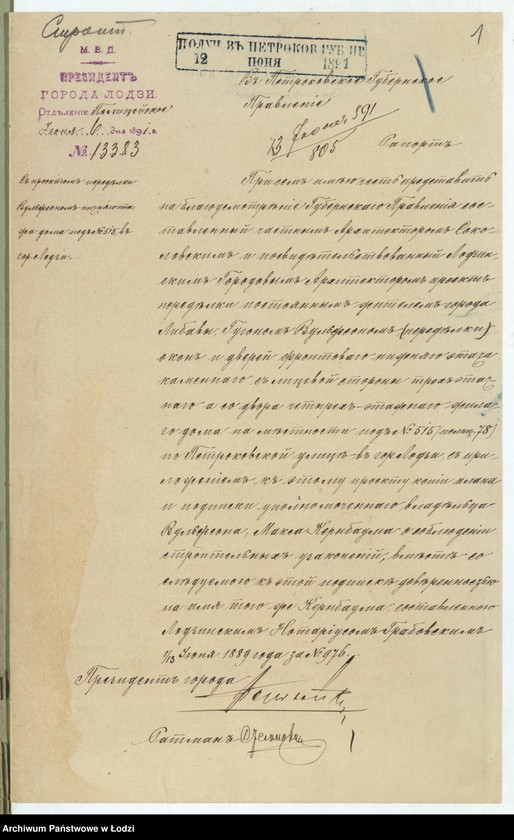 Строит.
1
М. В. Д.
ПРЕЗИДЕНТЪ
ГОРОДА ЛОДЗИ.
Отдѣленіе Полицейское
Іюня 6 дня 1891 г.
№ 13383
ПОЛУЧ. ВЪ ПЕТРОКОВ. ГУБ. ПР.
12 ІЮНЯ 1891
Въ Петроковское Губернское
Правленіе
13 Іюня 891
805
Рапортъ
Съ проектомъ передѣлки
Вульфсономъ нижняго эта-
жа дома подъ № 515, въ
гор. Лодзи.
При семъ имѣю честь представить
на благоусмотрѣніе Губернскаго Правленія сос-
тавленный частнымъ Архитекторомъ Соко-
ловскимъ и посвидѣтельствованный Лодзин-
скимъ Городовымъ Архитекторомъ проектъ
передѣлки постояннымъ жителемъ города
Либавы, Гугономъ Вульфсономъ (передѣлки)
оконъ и дверей фронтоваго нижняго этажа
каменнаго съ лицевой стороны трехъ-этаж-
наго а со двора четырехъ-этажнаго жила-
го дома на мѣстности подъ № 515 (полиц. 78)
по Петроковской улицѣ въ гор. Лодзи, съ при-
ложеніемъ къ этому проекту копіи плана
и подписки уполномоченнаго владѣльца
Вульфсона, Макса Кернбаума о соблюденіи
строительныхъ узаконеній, вмѣстѣ со
слѣдуемого къ этой подпискѣ довѣренностью
на имя того же Кернбаума, составленного
Лодзинскимъ Нотаріусомъ Грабовскимъ
1/13 Іюня 1889 года за № 976.
Президентъ города
Ратманъ
Archiwum Państwowe w Łodzi